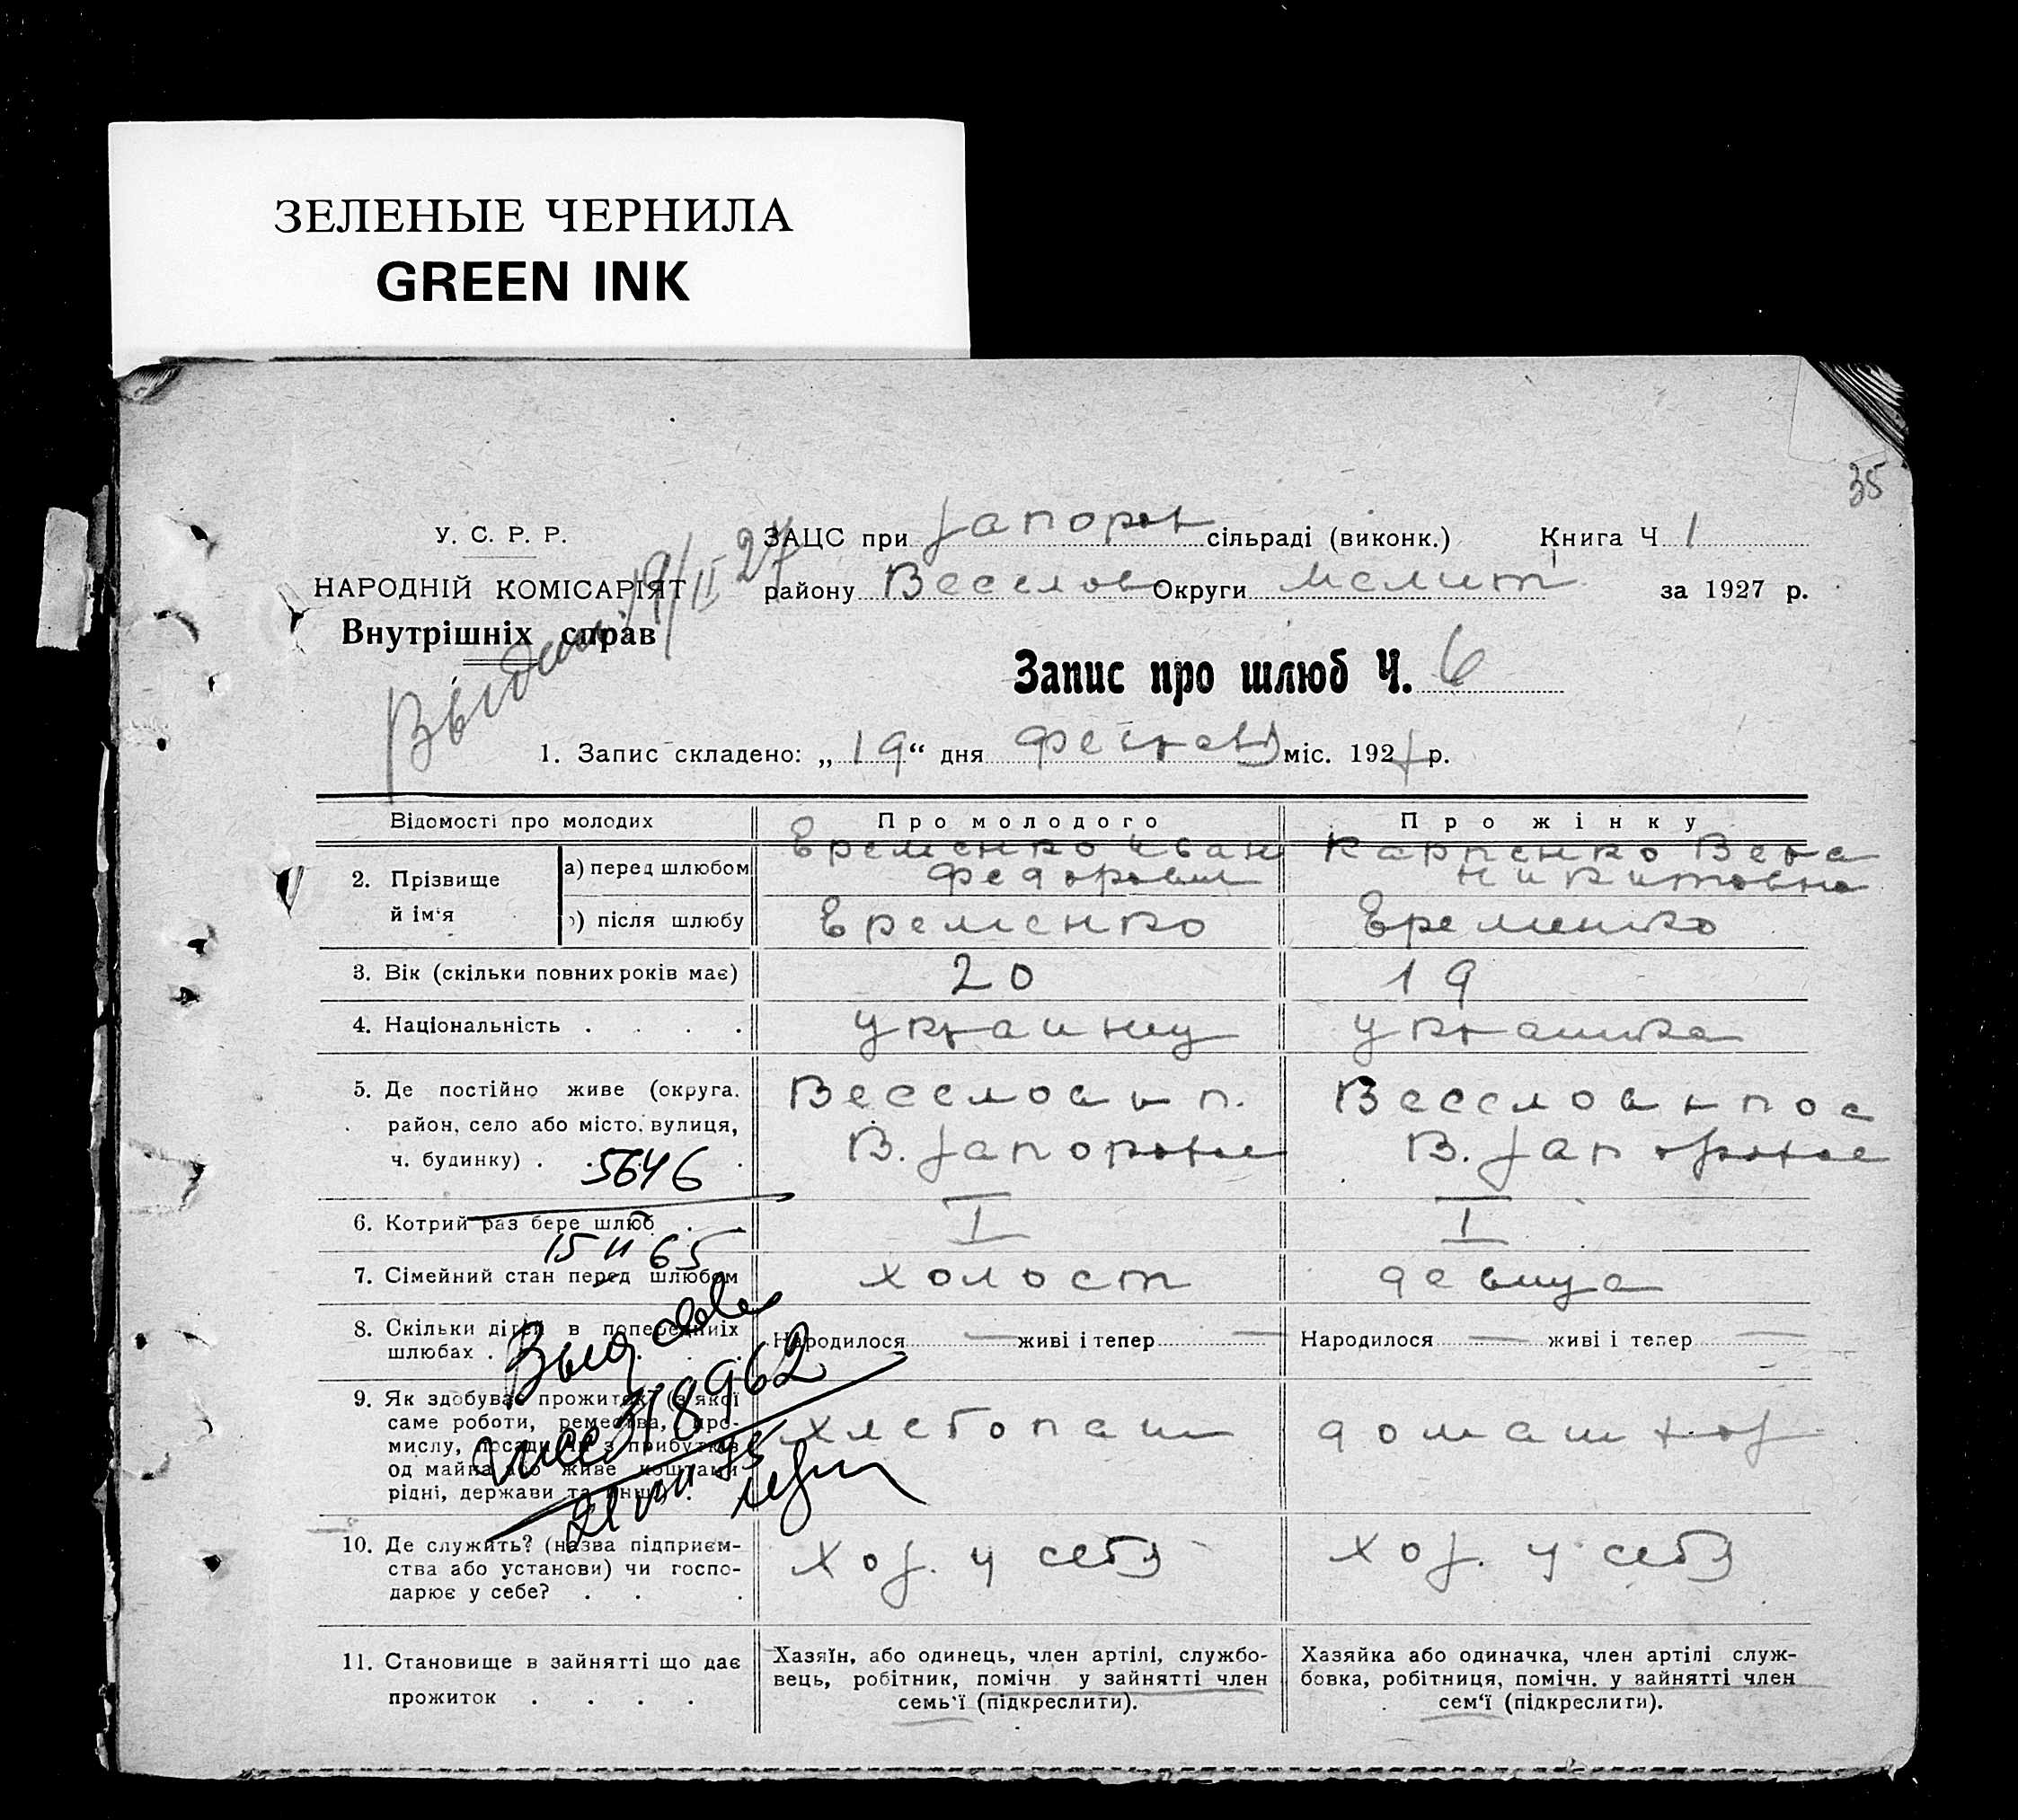 ЗЕЛЕНЫЕ ЧЕРНИЛА
GREEN INK
35
У. С. Р. Р.
НАРОДНІЙ КОМІСАРІЯТ
Внутрішніх справ
19/II 27
ЗАЦС при Запорож сільраді (виконк.) Книга Ч 1
району Веселов Округи Мелит за 1927 р.
Запис про шлюб Ч. 6
1. Запис складено: „ 19 “ дня февраля міс. 1927 р.
Відомості про молодих Про молодого Про жінку
2. Прізвище й ім'я
а) перед шлюбом Еременко Иван Федорович Карпенко Вера Никитовна
б) після шлюбу Еременко Еременко
3. Вік (скільки повних років має) 20 19
4. Національність . . . . украинц украинка
5. Де постійно живе (округа,
район, село або місто, вулиця,
ч. будинку) .
В. Запорожье В. Запорожье
5646
6. Котрий раз бере шлюб . . I I
15 II 65
7. Сімейний стан перед шлюбом холост девица
8. Скільки дітей в попередніх
шлюбах . Народилося — живі і тепер — Народилося — живі і тепер —
318962
9. Як здобуває прожиток? (з якої
саме роботи, ремества, про-
мислу, посади чи з прибутків
од майна або живе коштами
рідні, держави та инш.) .
хлебопаш домаш хоз
10. Де служить? (назва підприєм-
ства або установи) чи госпо-
дарює у себе? . . .
Хоз. у себя Хоз. у себя
11. Становище в зайнятті що дає
прожиток . . . .
Хазяїн, або одинець, член артілі, службо-
вець, робітник, помічн у зайнятті член
семь'ї (підкреслити).
Хазяйка або одиначка, член артілі служ-
бовка, робітниця, помічн. у зайнятті член
сем'ї (підкреслити).